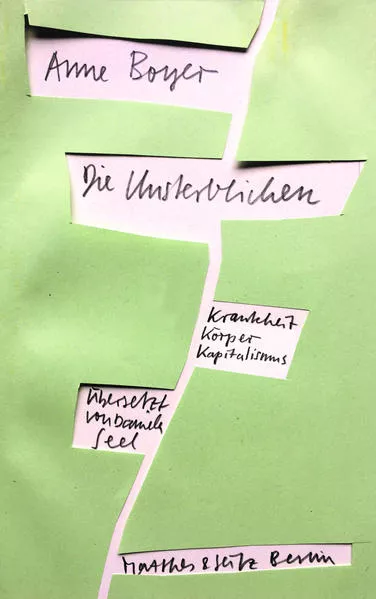 Anne Boyer
Die Unsterblichen
Krankheit
Körper
Kapitalismus
Übersetzt
von Daniela
Seel
Matthes & Seitz Berlin